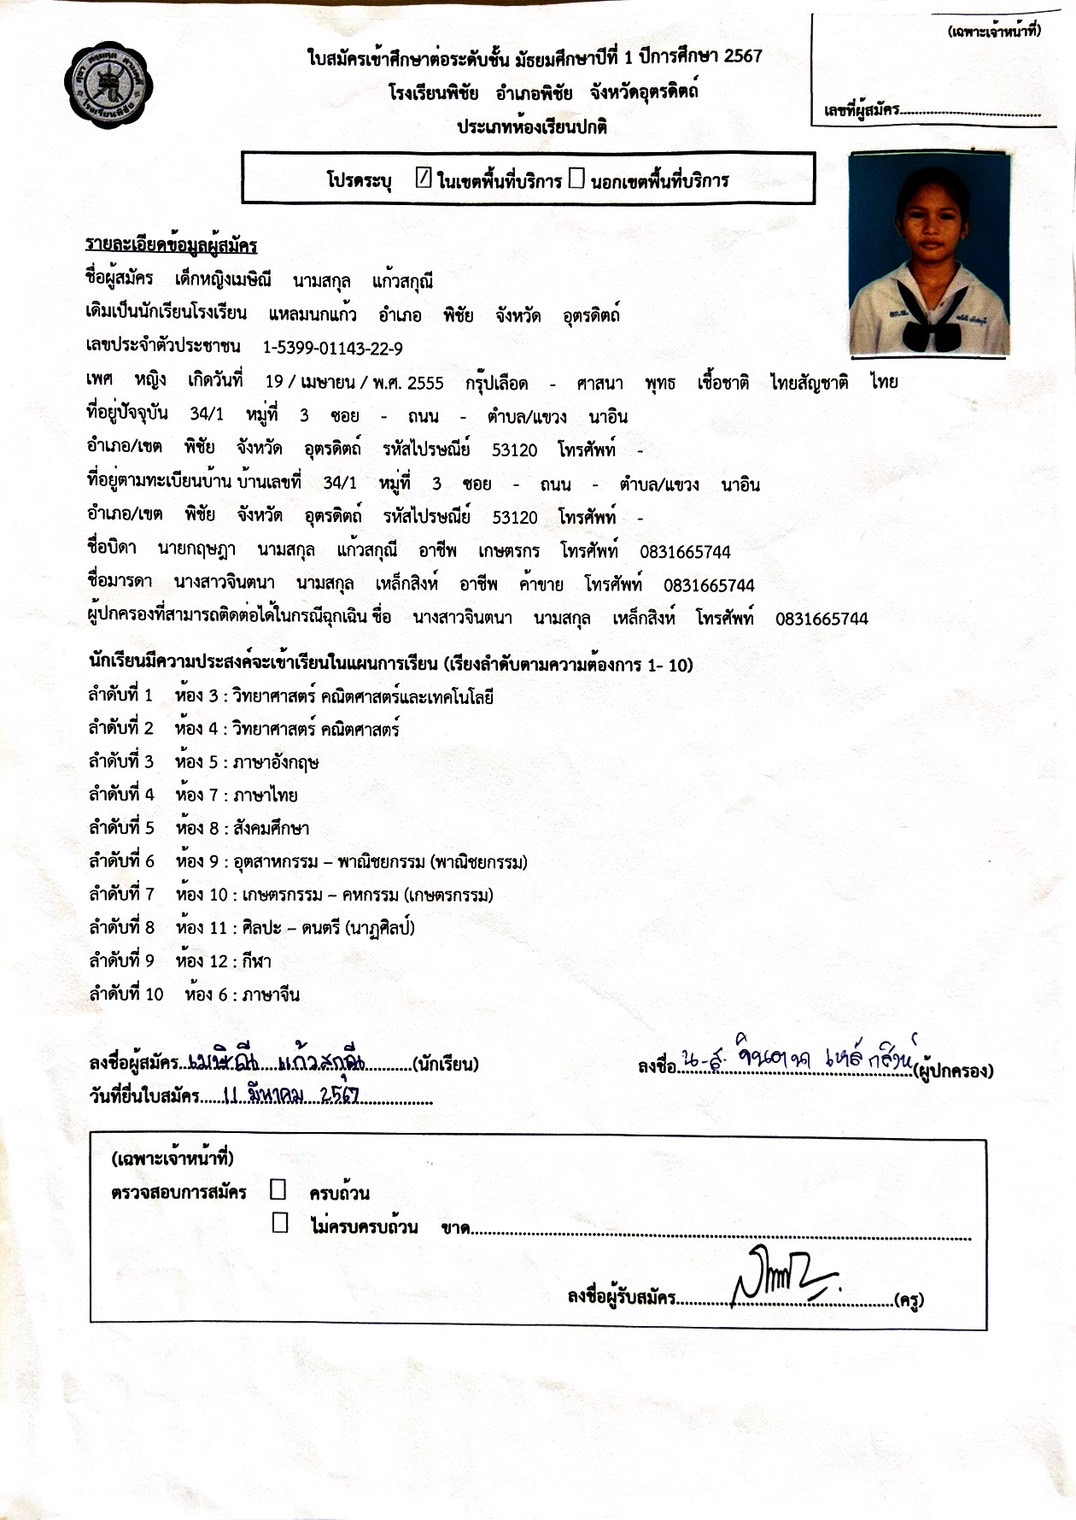 (เฉพาะเจ้าหน้าที่)
ใบสมัครเข้าศึกษาต่อระดับชั้น มัธยมศึกษาปีที่ 1 ปีการศึกษา 2567
โรงเรียนพิชัย อำเภอพิชัย จังหวัดอุตรดิตถ์
เลขที่ผู้สมัคร
ประเภทห้องเรียนปกติ
โปรดระบุ / ในเขตพื้นที่บริการ นอกเขตพื้นที่บริการ
รายละเอียดข้อมูลผู้สมัคร
ชื่อผู้สมัคร เด็กหญิงเมษิณี นามสกุล แก้วสกุณี
เดิมเป็นนักเรียนโรงเรียน แหลมนกแก้ว อำเภอ พิชัย จังหวัด อุตรดิตถ์
เลขประจำตัวประชาชน 1-5399-01143-22-9
เพศ หญิง เกิดวันที่ 19 / เมษายน / พ.ศ. 2555 กรุ๊ปเลือด - ศาสนา พุทธ เชื้อชาติ ไทยสัญชาติ ไทย
ที่อยู่ปัจจุบัน 34/1 หมู่ที่ 3 ซอย - ถนน - ตำบล/แขวง นาอิน
อำเภอ/เขต พิชัย จังหวัด อุตรดิตถ์ รหัสไปรษณีย์ 53120 โทรศัพท์ -
ที่อยู่ตามทะเบียนบ้าน บ้านเลขที่ 34/1 หมู่ที่ 3 ซอย - ถนน - ตำบล/แขวง นาอิน
อำเภอ/เขต พิชัย จังหวัด อุตรดิตถ์ รหัสไปรษณีย์ 53120 โทรศัพท์ -
ชื่อบิดา นายกฤษฎา นามสกุล แก้วสกุณี อาชีพ เกษตรกร โทรศัพท์ 0831665744
ชื่อมารดา นางสาวจินตนา นามสกุล เหล็กสิงห์ อาชีพ ค้าขาย โทรศัพท์ 0831665744
ผู้ปกครองที่สามารถติดต่อได้ในกรณีฉุกเฉิน ชื่อ นางสาวจินตนา นามสกุล เหล็กสิงห์ โทรศัพท์ 0831665744
นักเรียนมีความประสงค์จะเข้าเรียนในแผนการเรียน (เรียงลำดับตามความต้องการ 1- 10)
ลำดับที่ 1 ห้อง 3 : วิทยาศาสตร์ คณิตศาสตร์และเทคโนโลยี
ลำดับที่ 2 ห้อง 4 : วิทยาศาสตร์ คณิตศาสตร์
ลำดับที่ 3 ห้อง 5 : ภาษาอังกฤษ
ลำดับที่ 4 ห้อง 7 : ภาษาไทย
ลำดับที่ 5 ห้อง 8 : สังคมศึกษา
ลำดับที่ 6 ห้อง 9 : อุตสาหกรรม – พาณิชยกรรม (พาณิชยกรรม)
ลำดับที่ 7 ห้อง 10 : เกษตรกรรม – คหกรรม (เกษตรกรรม)
ลำดับที่ 8 ห้อง 11 : ศิลปะ – ดนตรี (นาฏศิลป์)
ลำดับที่ 9 ห้อง 12 : กีฬา
ลำดับที่ 10 ห้อง 6 : ภาษาจีน
ลงชื่อผู้สมัคร เมษิณี แก้วสกุณี (นักเรียน) ลงชื่อ น.ส. จินตนา เหล็กสิงห์ (ผู้ปกครอง)
วันที่ยื่นใบสมัคร 11 มีนาคม 2567
(เฉพาะเจ้าหน้าที่)
ตรวจสอบการสมัคร ครบถ้วน
ไม่ครบครบถ้วน ขาด
ลงชื่อผู้รับสมัคร (ครู)